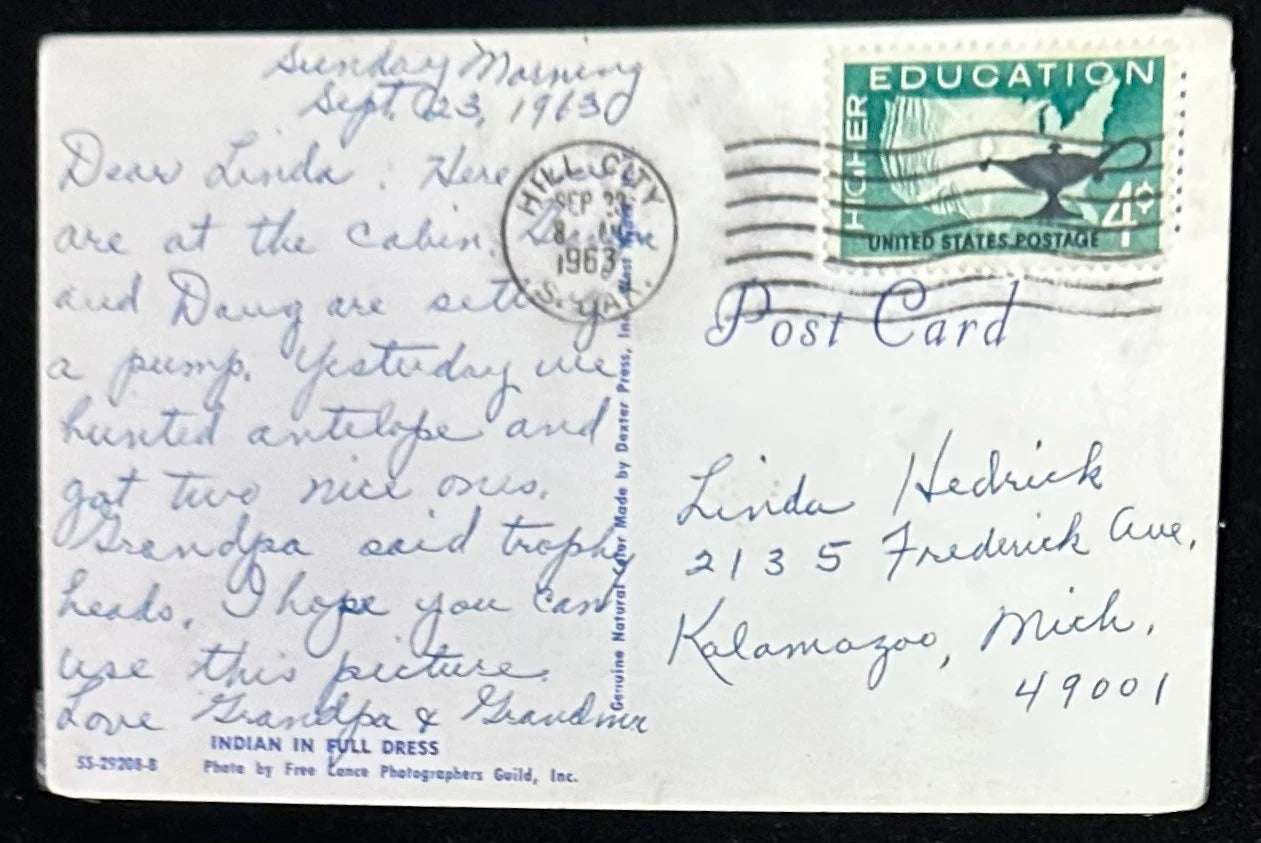 Sunday Morning
Sept. 23, 1963
Dear Linda: Here
are at the cabin.
and Doug are
a pump. Yesterday we
hunted antelope and
got two nice ones.
Grandpa said trophy
heads. I hope you can
use this picture.
Love Grandpa & Grandma
INDIAN IN FULL DRESS
SS-29208-B
Photo by Free Lance Photographers Guild, Inc.
Genuine Natural Color Made by Dexter Press, Inc.
HILL CITY
SEP
8
1963
S. DAK.
HIGHER EDUCATION
4¢
UNITED STATES POSTAGE
Post Card
Linda Hedrick
2135 Frederick Ave,
Kalamazoo, Mich,
49001